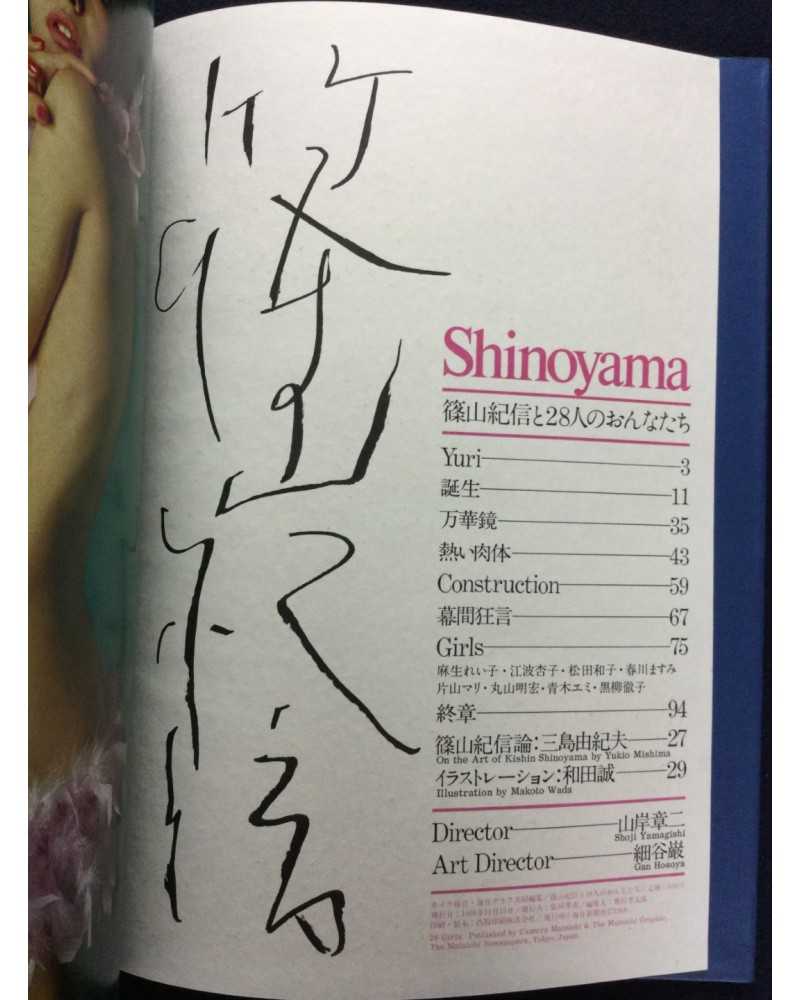 篠山紀信
Shinoyama
篠山紀信と28人のおんなたち
Yuri 3
誕生 11
万華鏡 35
熱い肉体 43
Construction 59
幕間狂言 67
Girls 75
麻生れい子・江波杏子・松田和子・春川ますみ
片山マリ・丸山明宏・青木エミ・黒柳徹子
終章 94
篠山紀信論:三島由紀夫 27
On the Art of Kishin Shinoyama by Yukio Mishima
イラストレーション:和田誠 29
Illustration by Makoto Wada
Director 山岸章二
Shoji Yamagishi
Art Director 細谷巖
Gan Hosoya
28 Girls Published by Camera Mainichi & The Mainichi Graphic,
The Mainichi Newspapers, Tokyo, Japan.